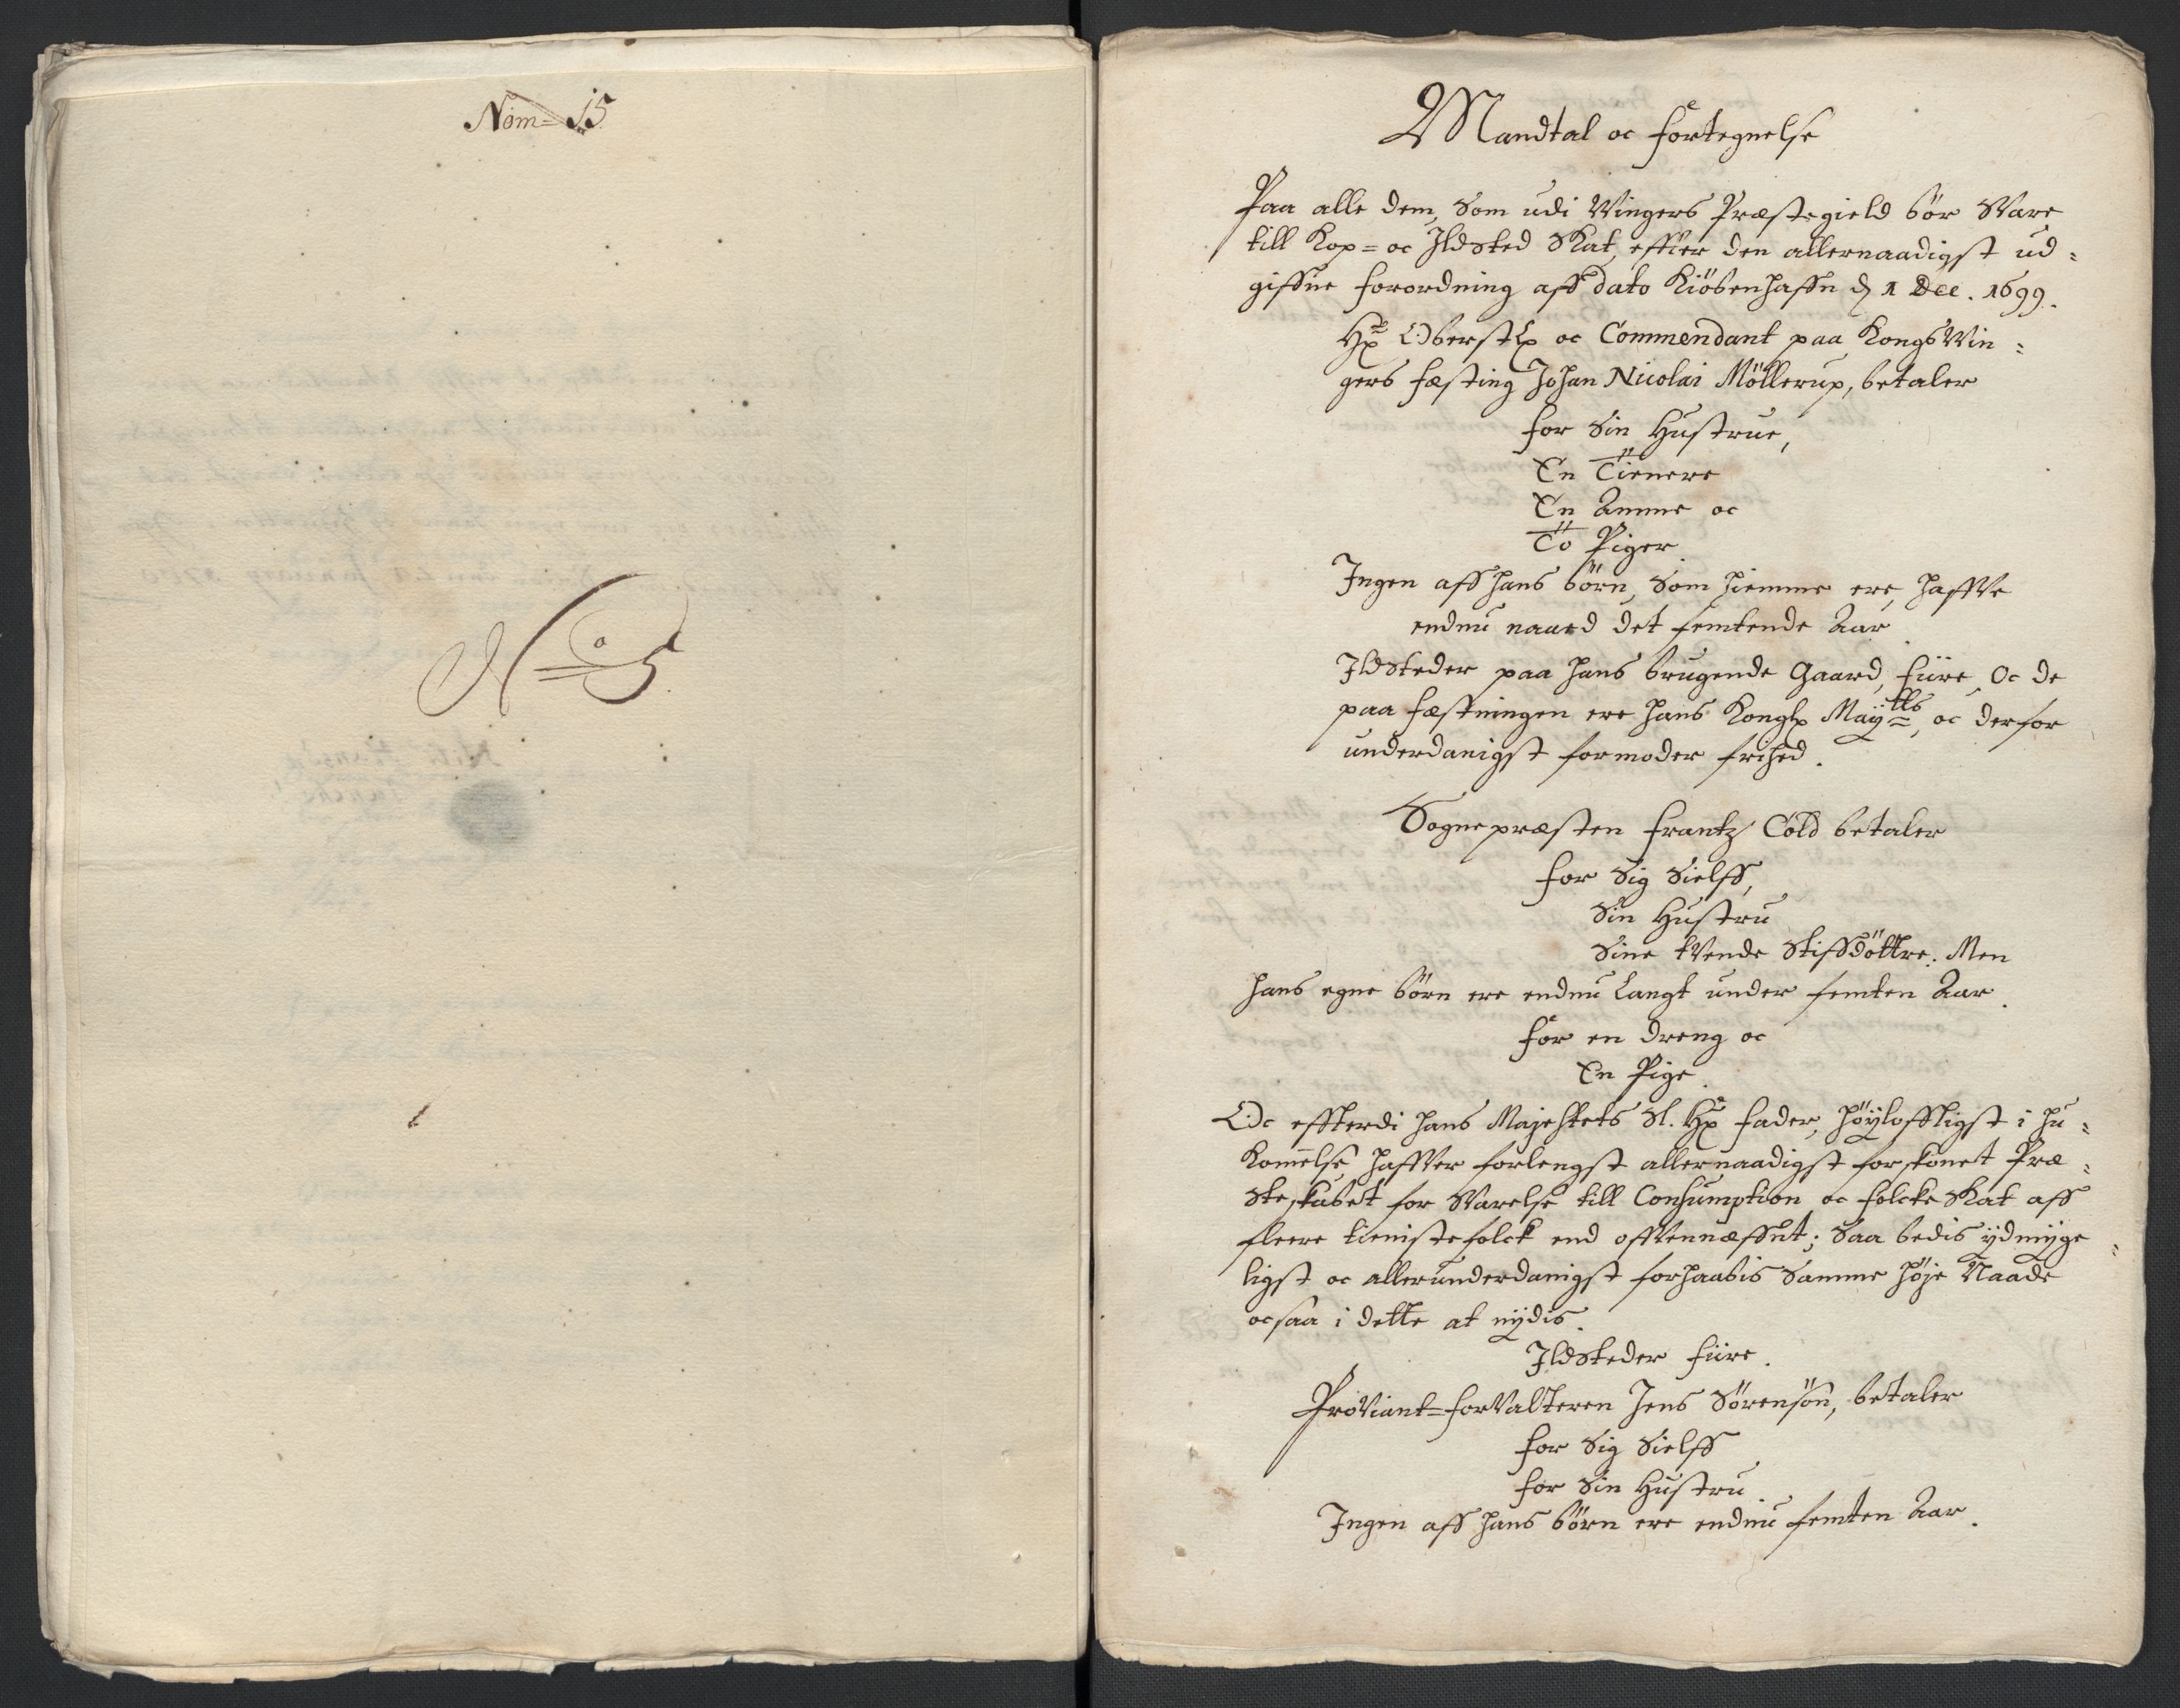 Nom= 15
No 5
Mandtal oc fortegnelse
Paa alle dem, Som udi Wingers Præstegield bör Svare
till Kop= oc Ildsted Skat, effter den allernaadigst ud=
giffne forordning aff dato Kiöbenhaffn d 1 Dec. 1699.
Hr Oberst oc Commendant paa KongsWin=
gers fæsting Johan Nicolai Möllerup, betaler
for Sin Hustrue,
En Tienere
En Amme oc
To Piger
Ingen aff hans börn, Som hiemme ere, haffve
endnu naaed det femtende Aar
Ildsteder paa hans brugende Gaard, fiire, Oc de
paa fæstningen ere hans Kongl Maytts, oc derfor
underdanigst formoder frihed.
Sognepræsten Frantz Cold betaler
for Sig Sielff,
Sin Hustru
Sine tvende Stiffdöttre. Men
hans egne börn ere endnu langt under femten Aar.
för en dreng oc
En Pige.
Oc effterdi hans Majestets Sl. Hr fader, höyloffligst i hu=
kommelse haffver forlengst allernaadigst forskonet Præ=
steskabet for Svarelse till Consumption oc folcke Skat aff
fleere tienistefolck end offvennæffnt; Saa bedis ydmyge=
ligst oc allerunderdanigst forhaabis Samme höje Naade
ocsaa i dette at nydis.
Ildsteder fiire.
Proviant=forvalteren Jens Sörensön, betaler
for Sig Sielff
for Sin Hustru
Ingen aff hans börn ere endnu femten Aar.